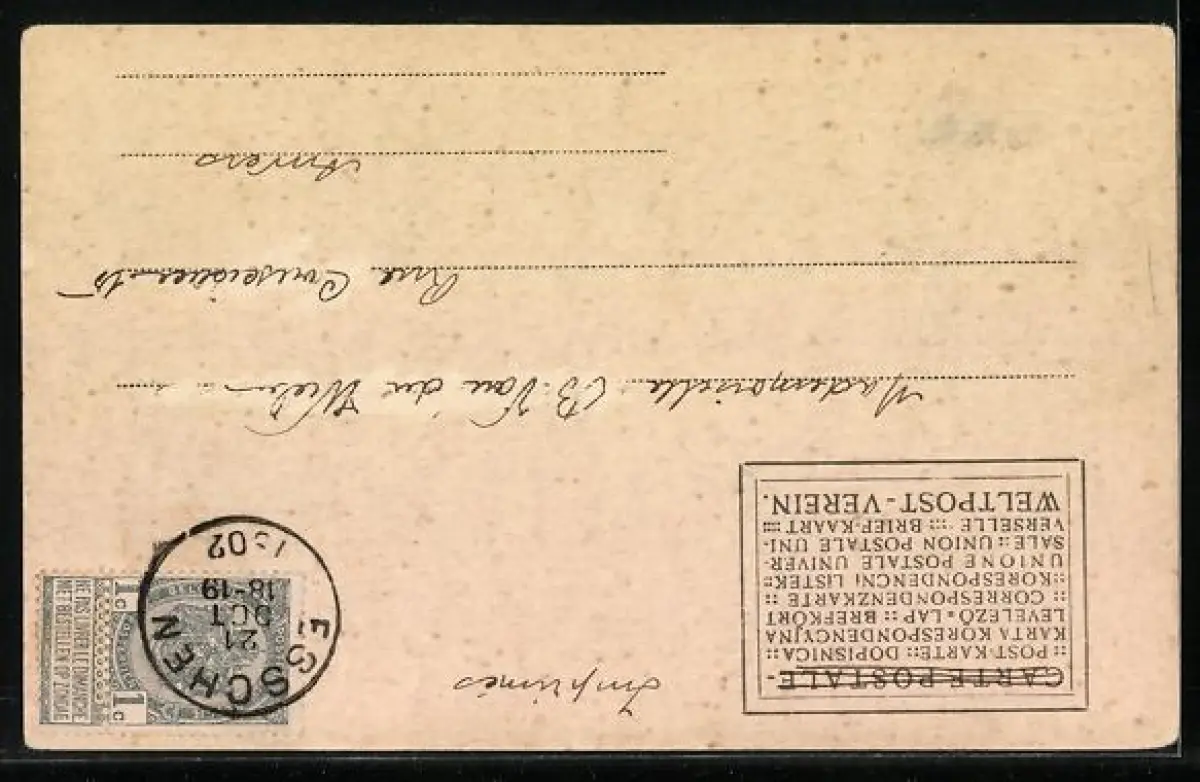 CARTE POSTALE-
:: POST-KARTE :: DOPISNICA ::
KARTA KORESPONDENCYJNA
LEVELEZŐ-LAP :: BREFKORT
:: CORRESPONDENZKARTE ::
:: KORESPONDENCNI LISTEK ::
UNIONE POSTALE UNIVER-
SALE :: UNION POSTALE UNI-
VERSELLE ::: BRIEF-KAART :::
WELTPOST-VEREIN.
Imprimés
1c 1c
NE PAS LIVRER LE DIMANCHE
NIET BESTELLEN OP ZONDAG
ESSCHEN
21
OCT
18-19
1902
Mademoiselle B. Van der Wielen
Rue
Anvers